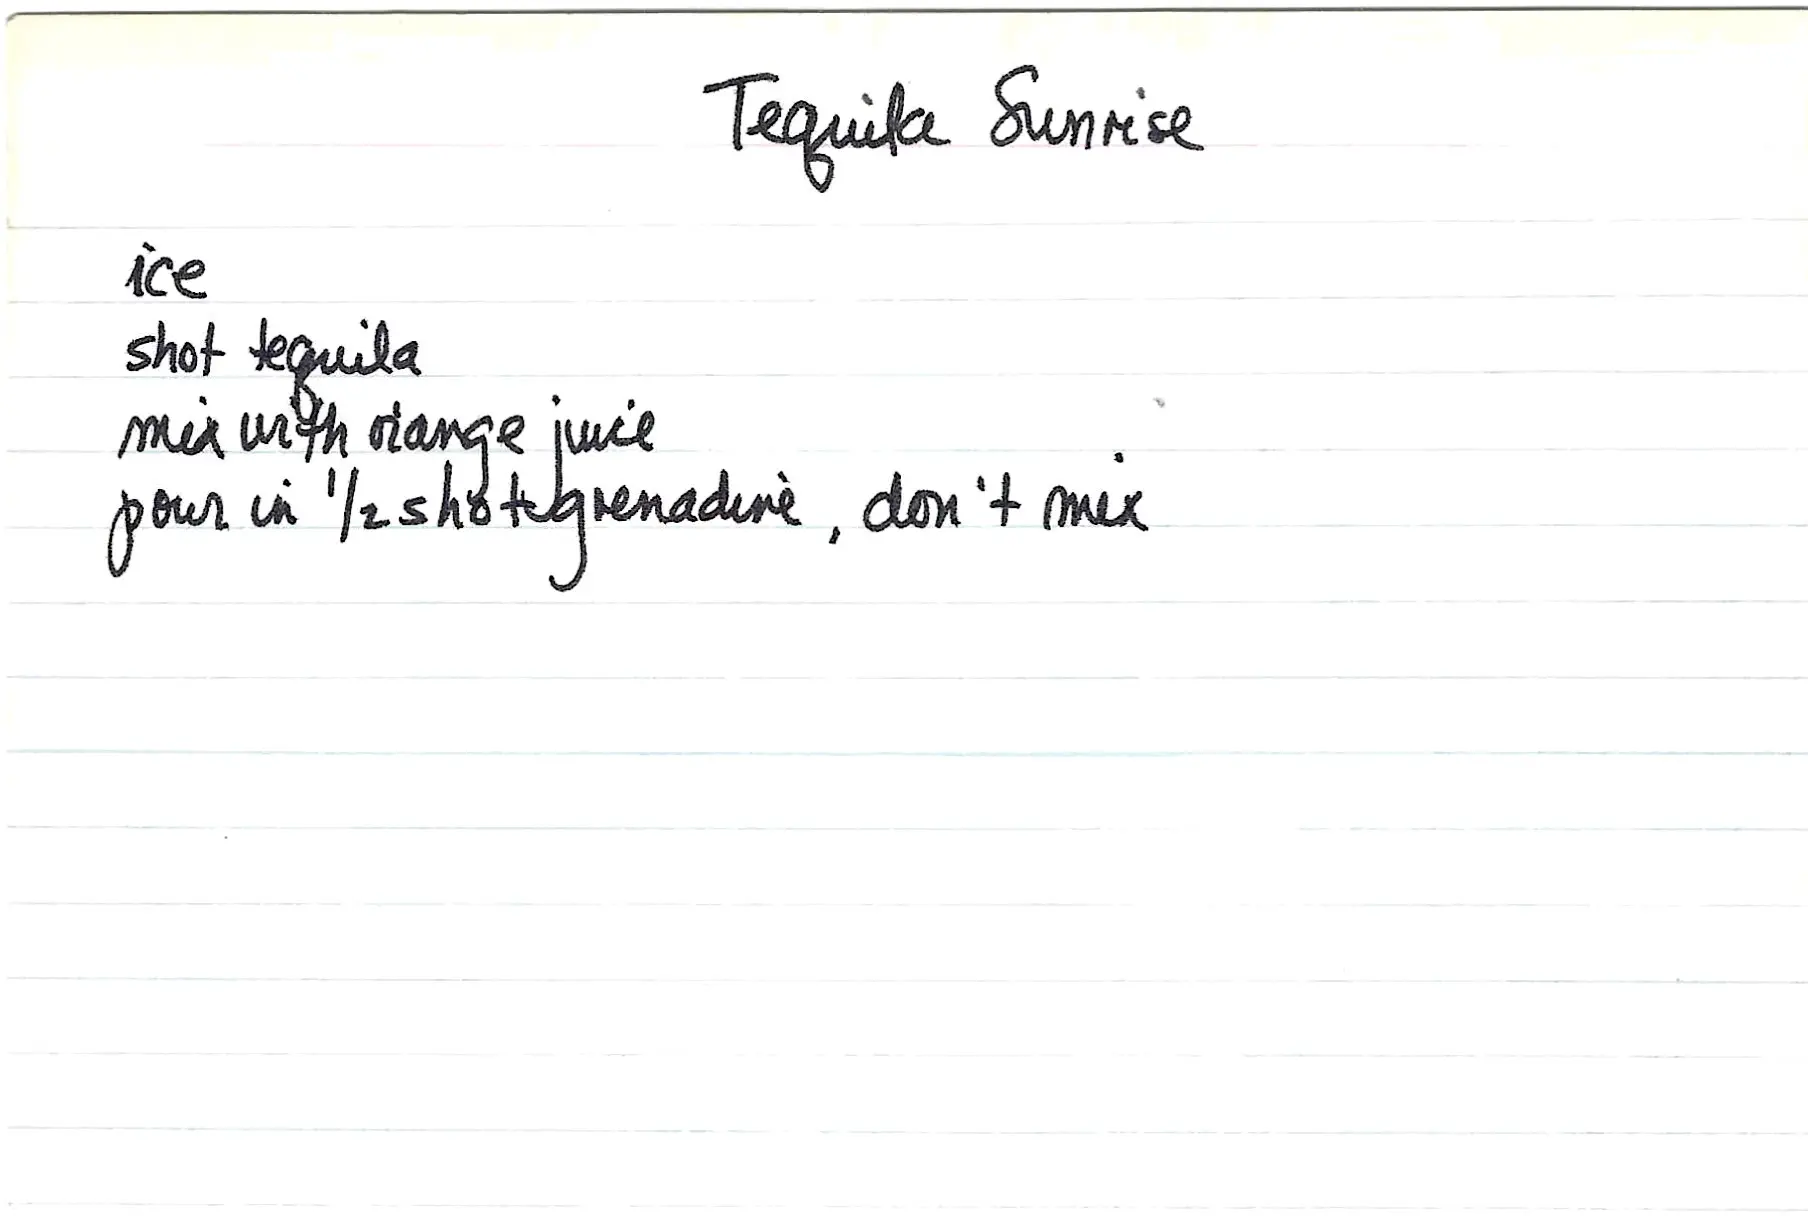 Tequila Sunrise
ice
shot tequila
mix with orange juice
pour in 1/2 shot grenadine, don't mix